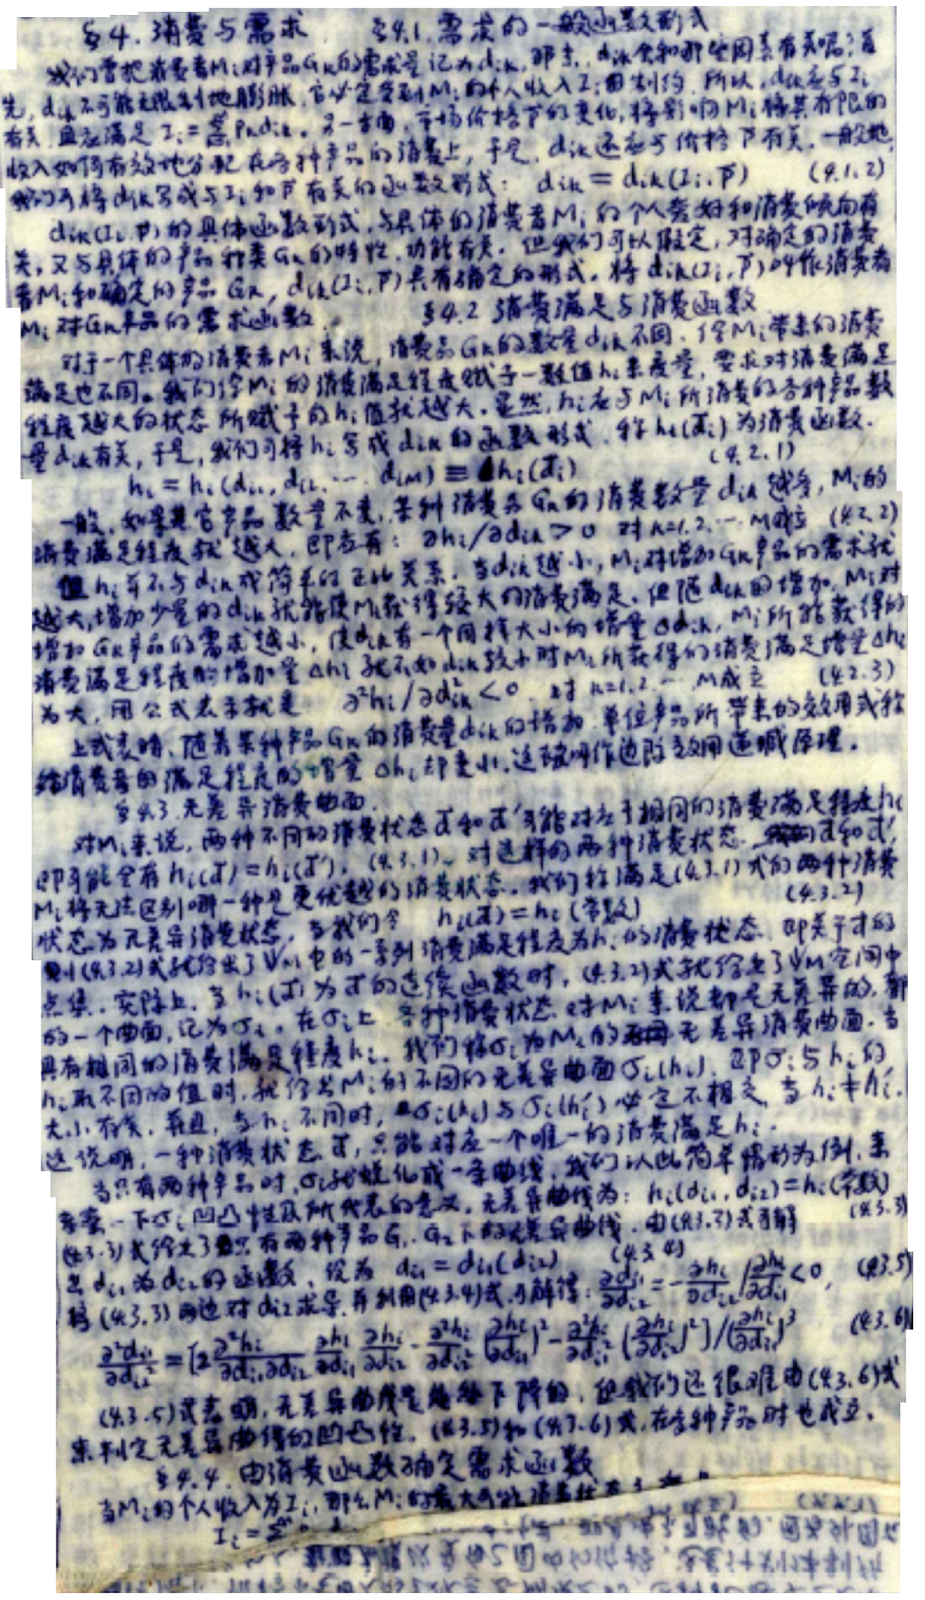 §4. 消费与需求 §4.1. 需求的一般函数形式
我们曾把消费者Mi对产品Gk的需求量记为dik, 那末, dik会和那些因素有关呢?首
先, dik不可能无限制地膨胀, 它必定受到Mi的个人收入Ii的制约. 所以, dik应与Ii
有关, 且应满足 Ii = Σ Pkdik. 另一方面, 市场价格P的变化, 将影响Mi将其有限的
收入如何有效地分配在各种产品的消费上, 于是, dik还应与价格P有关. 一般地,
我们可将dik写成与Ii和P有关的函数形式: dik = dik(Ii, P) (4.1.2)
dik(Ii, P)的具体函数形式, 与具体的消费者Mi的个人爱好和消费倾向有
关, 又与具体的产品种类Gk的特性、功能有关. 但我们可以假定, 对确定的消费
者Mi和确定的产品Gk, dik(Ii, P)具有确定的形式. 将dik(Ii, P)叫作消费者
Mi对Gk产品的需求函数. §4.2 消费满足与消费函数
对于一个具体的消费者Mi来说, 消费品Gk的数量dik不同, 给Mi带来的消费
满足也不同. 我们给Mi的消费满足程度赋予一数值hi来度量, 要求对消费满足
程度越大的状态所赋予的hi值就越大. 显然, hi应与Mi所消费的各种产品数
量dik有关, 于是, 我们可将hi写成dik的函数形式. 称hi(d̄i)为消费函数.
hi = hi(di1, di2, … diM) ≡ hi(d̄i) (4.2.1)
一般, 如果其它产品数量不变, 某种消费品Gk的消费数量dik越多, Mi的
消费满足程度就越大, 即应有: ∂hi/∂dik > 0 对k=1.2.… M成立 (4.2.2)
但hi并不与dik成简单的正比关系. 当dik越小, Mi对增加Gk产品的需求就
越大, 增加少量的dik就能使Mi获得较大的消费满足. 但随dik的增加, Mi对
增加Gk产品的需求越小, 使dik有一个同样大小的增量Δdik, Mi所能获得的
消费满足程度的增加量Δhi就不如dik较小时Mi所获得的消费满足增量Δhi
为大, 用公式表示就是 ∂²hi/∂d²ik < 0 对k=1.2.… M成立 (4.2.3)
上式表明, 随着某种产品Gk的消费量dik的增加, 单位产品所带来的效用或称
给消费者的满足程度的增量Δhi却变小. 这被叫作边际效用递减原理.
§4.3 无差异消费曲面.
对Mi来说, 两种不同的消费状态d̄和d̄'可能对应于相同的消费满足程度hi
即可能会有hi(d̄) = hi(d̄'). (4.3.1). 对这样的两种消费状态 d̄和d̄',
Mi将无法区别哪一种是更优越的消费状态. 我们称满足(4.3.1)式的两种消费
状态为无差异消费状态, 当我们令 hi(d̄) = hi(常数) (4.3.2)
则(4.3.2)式就给出了ΨM中的一系列消费满足程度为hi的消费状态, 即关于d̄的
点集. 实际上, 当hi(d̄)为d̄的连续函数时, (4.3.2)式就给出了ΨM空间中
的一个曲面, 记为σi. 在σi上, 各种消费状态对Mi来说却是无差异的, 都
具有相同的消费满足程度hi. 我们称σi为Mi的无差异消费曲面. 当
hi取不同的值时, 就给出Mi的不同的无差异曲面σi(hi). 即σi与hi的
大小有关. 并且, 当hi不同时, σi(hi)与σi(hi')必定不相交, 当hi≠hi'.
这说明, 一种消费状态d̄, 只能对应一个唯一的消费满足hi.
当只有两种产品时, σi就蜕化成一条曲线, 我们以此简单情形为例, 来
考察一下σi凹凸性及所代表的意义. 无差异曲线为: hi(di1, di2) = hi(常数)
(4.3.3)式给出了只有两种产品G1、G2下的无差异曲线. 由(4.3.3)式可解 (4.3.3)
出di1为di2的函数, 设为 di1 = di1(di2) (4.3.4)
将(4.3.3)两边对di2求导, 并利用(4.3.4)式, 可解得: ∂di1/∂di2 = -∂hi/∂di2 / ∂hi/∂di1 < 0, (4.3.5)
∂²di1/∂d²i2 = [2 ∂²hi/∂di1∂di2 ∂hi/∂di1 ∂hi/∂di2 - ∂²hi/∂d²i2 (∂hi/∂di1)² - ∂²hi/∂d²i1 (∂hi/∂di2)²]/(∂hi/∂di1)³ (4.3.6)
(4.3.5)式表明, 无差异曲线是下降的, 但我们还很难由(4.3.6)式
来判定无差异曲线的凹凸性. (4.3.5)和(4.3.6)式, 在多种产品时也成立.
§4.4. 由消费函数确定需求函数
当Mi的个人收入为Ii, 那么Mi的最大可能消费
Ii = Σ